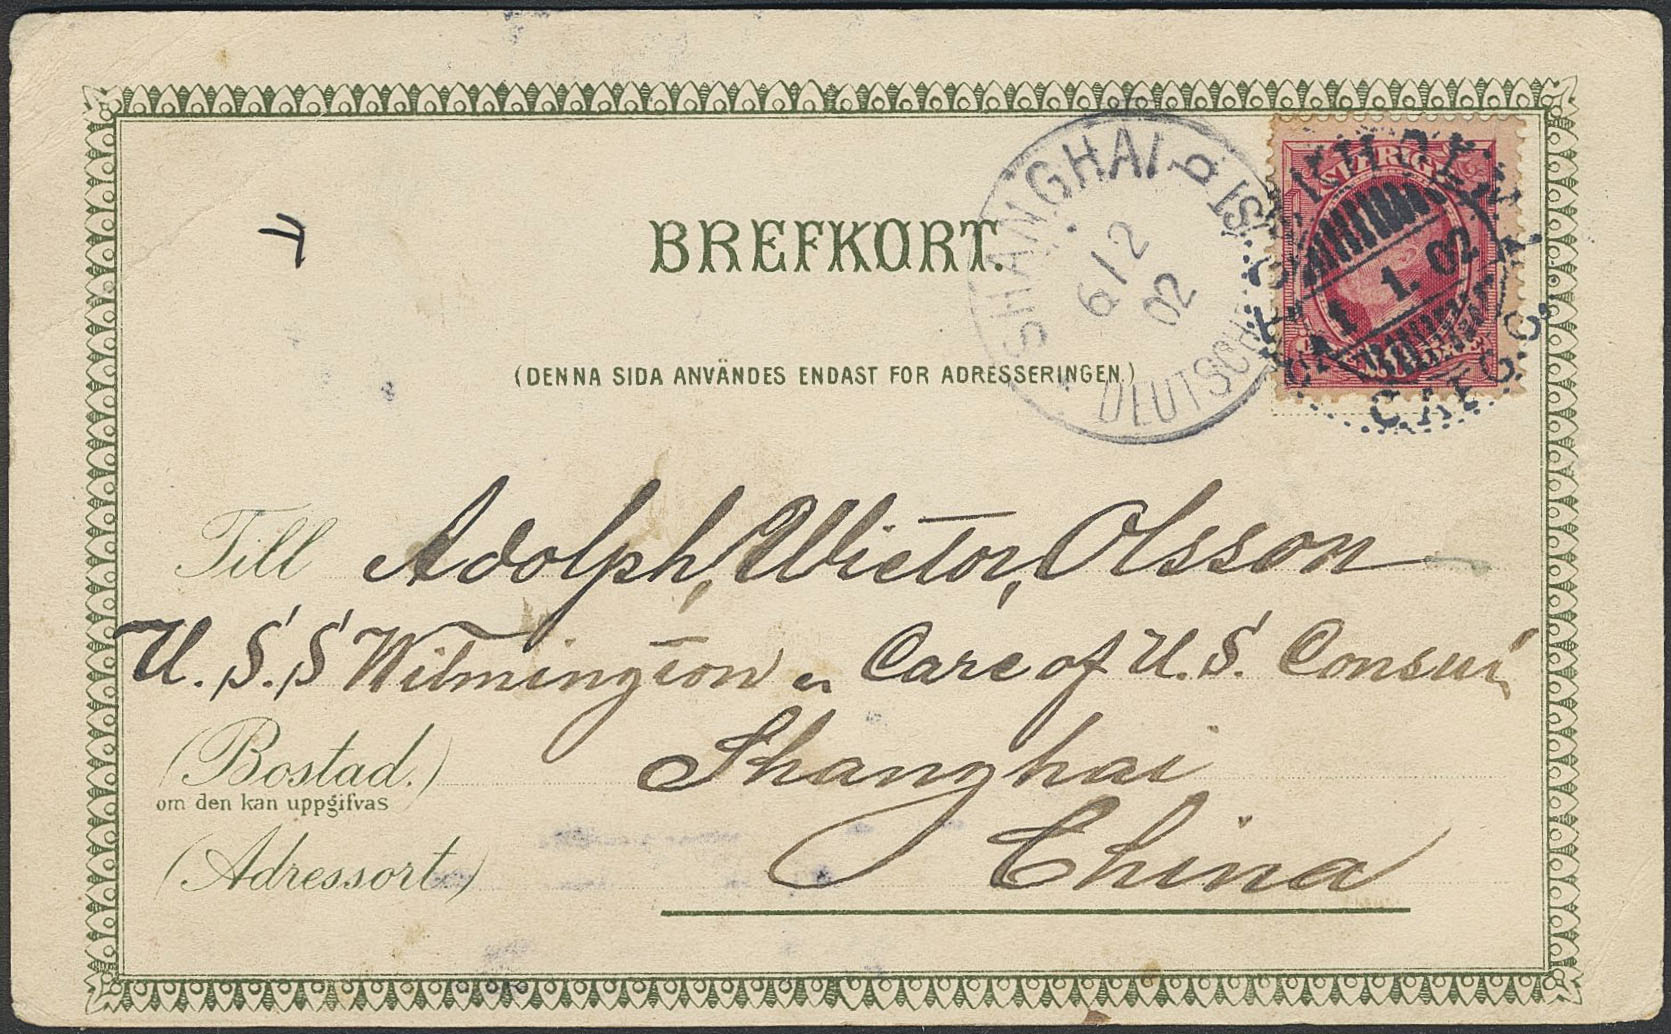 BREFKORT.
(DENNA SIDA ANVÄNDES ENDAST FOR ADRESSERINGEN.)
SHANGHAI
6/2
02
DEUTSCHE
SVERIGE
1. 02
Till Adolph, Wictor, Olsson
U.S.S Wilmington Care of U.S. Consul
(Bostad.) Shanghai
om den kan uppgifvas
(Adressort.) China